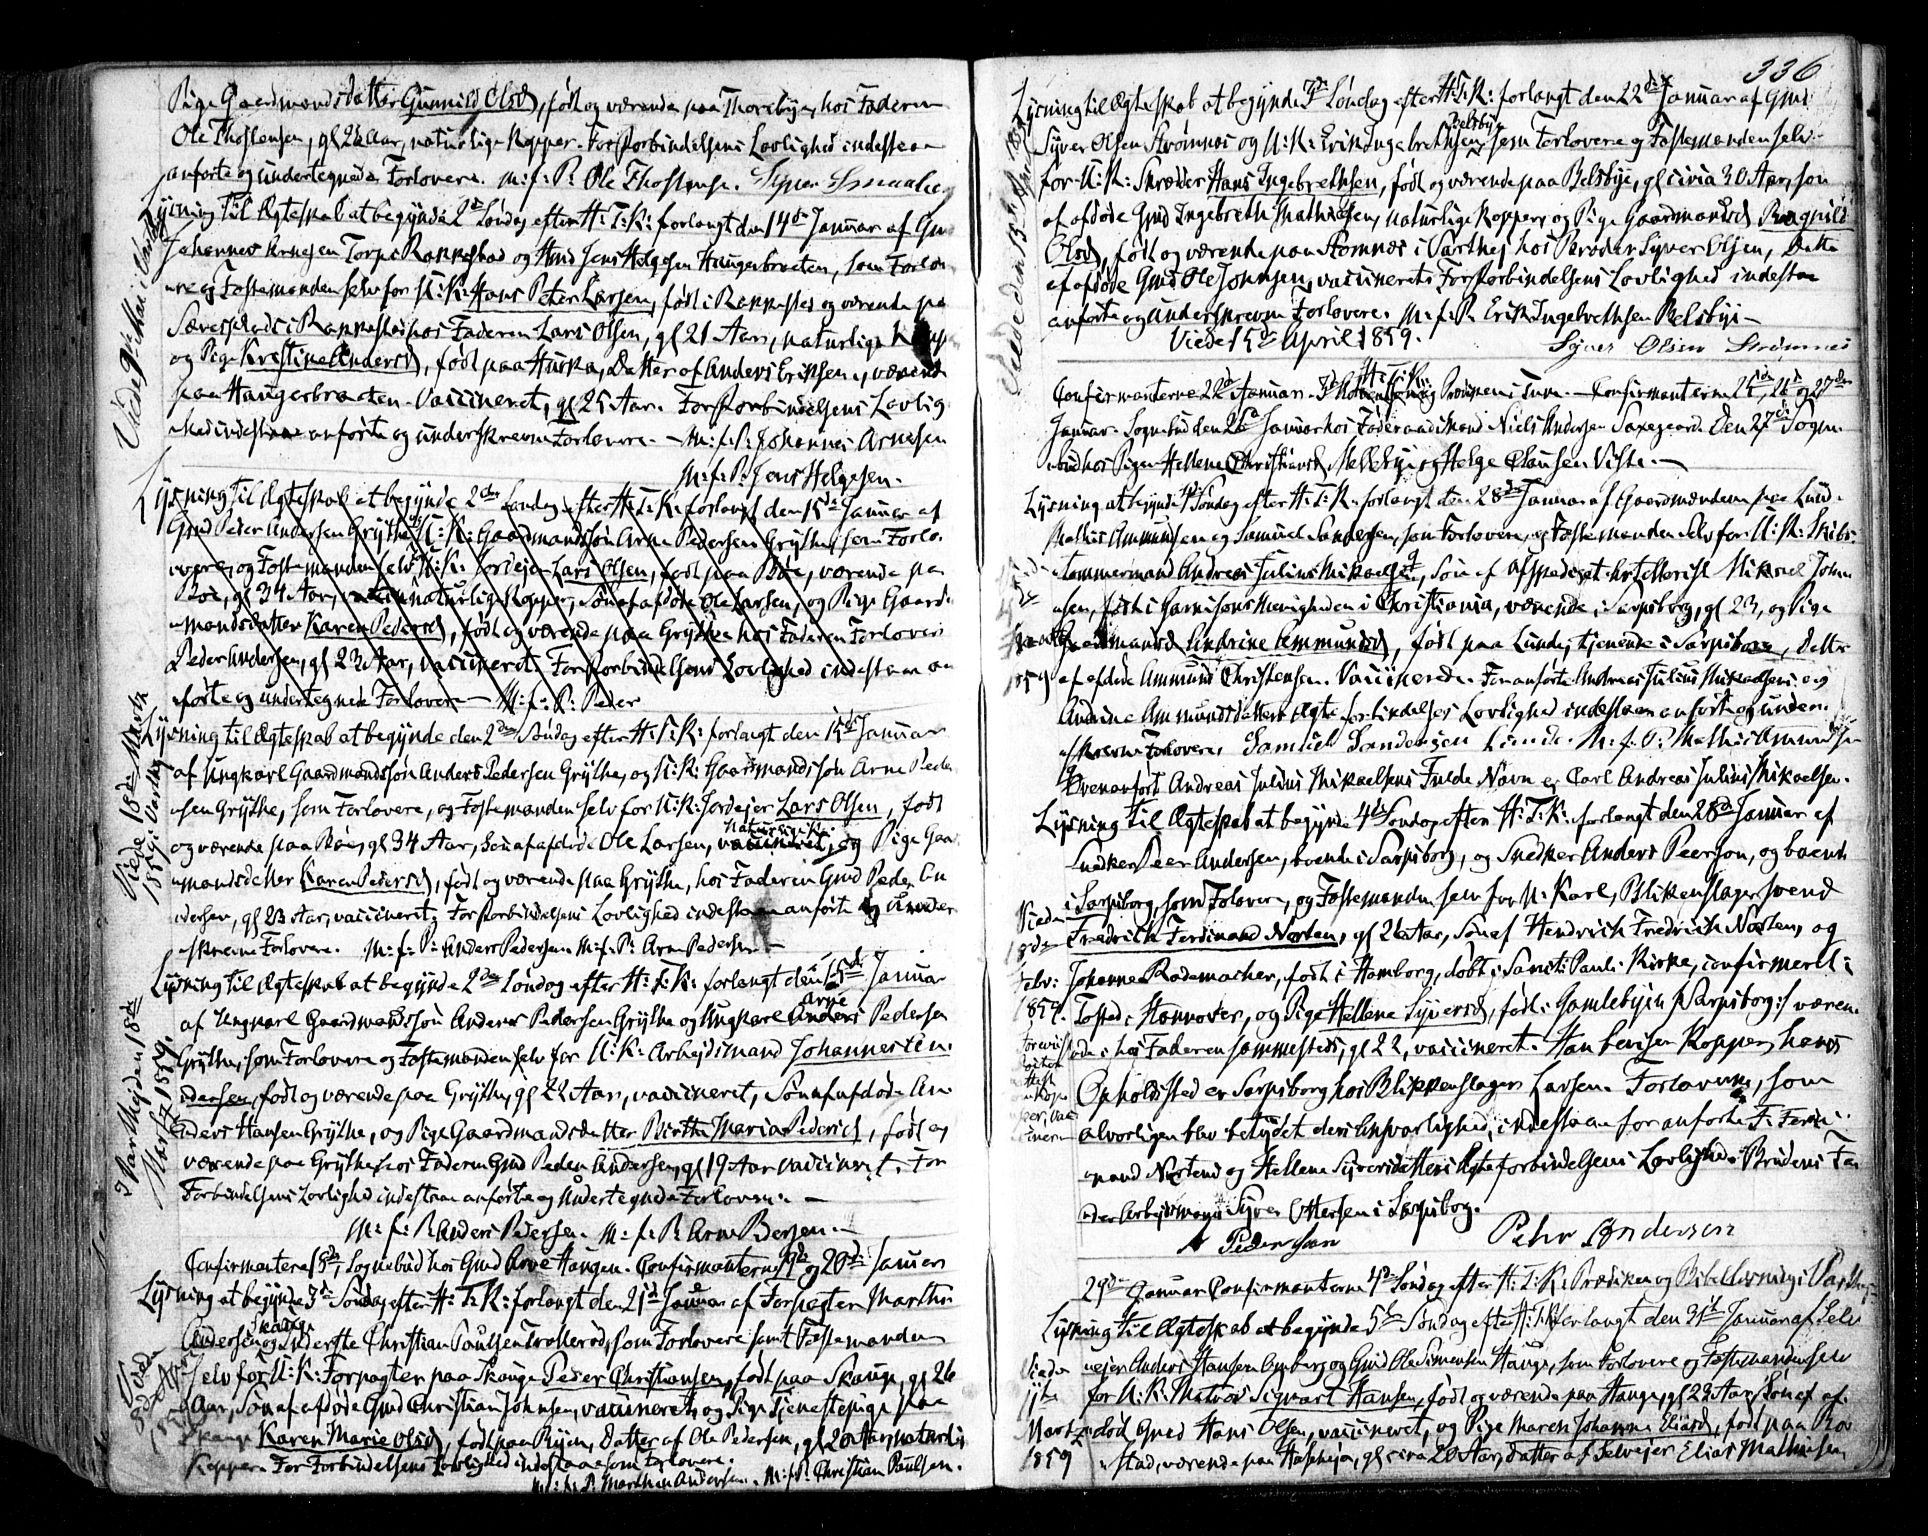 Pige Gaardmandsdatter Gunnild Olsd, født og værende paa Thorsbye, hos Faderen
Ole Thostensen, gl 26 Aar, naturlige Kopper. For Forbindelsens Lovlighed indestaae
anførte og undertegnede Forlovere. M: f: P. Ole Thostense. Syver
Lysning til Ægteskab at begynde 2d Søndag efter H: T: K: forlangt den 14de Januar af Gmd
Johannes Arnesen Torpe Rakkestad og Hmd Jens Helgesen Haugerbraaten, som Forlo-
vere og Fæstemanden selv for U: K: Hans Peter Larsen, født i Rakkestad og værende paa
i Rakkestad hos Faderen Lars Olsen, gl 21 Aar, naturlige Kopp
og Pige Kristine Andersd, født paa Huska, Datter af Anders Eriksen, værende
paa Haugerbraaten. Vaccineret, gl 25 Aar. For Forbindelsens Lovlig-
hed indestaae anførte og underskrevne Forlovere. – M: f: P. Johannes Arnesen
M: f: P. Jens Helgesen.
Viede 9de Mai i Varteig
Lysning til Ægteskab at begynde 2den Søndag efter H: T: K: forlangt den 15de Januar af
Gmd Peder Andersen Grythe og U: K: Gaardmandssøn Arne Pedersen Grythe, som Forlo-
vere, og Fæstemanden selv U: K: Jordejer Lars Olsen, født paa Bøe, værende paa
Bøe, gl 34 Aar, naturlige Kopper, Søn af afdøde Ole Larsen, og Pige Gaard-
mandsdatter Karen Pedersd, født og værende paa Grythe hos Faderen Forlover
Peder Andersen, gl 23 Aar, vaccineret. For Forbindelsens Lovlighed indestaae an-
førte og undertegnede Forlovere – M: f: P: Peder
Lysning til Ægteskab at begynde den 2den Søndag efter H: T: K: forlangt den 15de Januar
af Ungkarl Gaardmandssøn Anders Pedersen Grythe, og U: K: Gaardmandssøn Arne Peder-
sen Grythe, som Forlovere, og Fæstemanden selv for U: K: Jordejer Lars Olsen, født
og værende paa Bøe, gl 34 Aar, Søn af afdøde Ole Larsen, vaccineret, og Pige Gaard-
mandsdatter Karen Pedersd, født og værende paa Grythe, hos Faderen Gmd Peder An-
dersen, gl 23 Aar, vaccineret; For Forbindelsens Lovlighed indestaae anførte og under-
skrevne Forlovere. M: f: P: Anders Pedersen M: f: P: Arne Pedersen –
Viede 18de Marts
1859 i Varteig
Lysning til Ægteskab at begynde 2den Søndag efter H: T: K: forlangt den 15de Januar
af Ungkarl Gaardmandssøn Anders Pedersen Grythe og Ungkarl Arne Anders Pedersen
Grythe, som Forlovere og Fæstemanden selv for U: K: Arbejdsmand Johannes An-
dersen, født og værende paa Grythe, gl 22 Aar, vaccineret, Søn af afdøde An-
ders Hansen Grythe, og Pige Gaardmandsdatter Birthe Maria Pedersd, født og
værende paa Grythe hos Faderen Gmd Peder Andersen, gl 19 Aar vaccineret. For
Forbindelsens Lovlighed indestaae anførte og undertegnede Forlovere. –
M: f: P. Anders Pedersen. M: f: P. Arne Pedersen. –
I Vartheig den 18de
Marts 1859.
Confirmanterne 18de, Sognebud hos Gmd Arve Haugen. Confirmanterne 19de og 20de Januar
Lysning at begynde 3de Søndag efter H: T: K: forlangt den 21de Januar af Forpagter Marthin
Andersen Skauge og Inderste Christian Paulsen Trollerød, som Forlovere samt Fæstemanden
selv for U: K: Forpagter paa Skauge Peder Christiansen, født paa Skauge, gl 26
Aar, Søn af afdøde Gmd Christian Johnsen, vaccineret, og Pige Tjenestepige paa
Skauge Karen Marie Olsd, født paa Byen, Datter af Ole Pedersen, gl 20 Aar, naturlig
Kopper. For Forbindelsens Lovlighed indestaae som Forlovere.
M: f: P. Marthin Andersen. M: f: P. Christian Paulsen.
336
Lysning til Ægteskab at begynde 3de Søndag efter H: T: K: forlangt den 22de Januar af Gmd
Syver Olsen Strømnes og U: K: Erik Ingebrethsen Belsbye som Forlovere og Fæstemanden selv
for U: K: Skræder Hans Ingebrethsen, født og værende paa Belsbye, gl circa 30 Aar, Søn
af afdøde Gmd Ingebreth Mathisen, naturlige Kopper, og Pige Gaardmandsd Ragnild
Olsd, født og værende paa Strømnes i Varthej hos Broder Syver Olsen, Datter
af afdøde Gmd Ole Johnsen, vaccineret. For Forbindelsens Lovlighed indestaae
anførte og underskrevne Forlovere. M: f: P. Erik Ingebrethsen Belsbye –
Viede 15de April 1859. Syver Olsen Strømnes
Confirmanterne 22d Januar. 3d Søndag efter H: T: K: Prædiken i Tune – Confirmanterne 25d, 26d og 27de
Januar. Sognebud den 26de Januar hos Føderaadsmand Niels Andersen Saxegaard. Den 27de Sogne-
bud hos Pigen Hellene Christiansd, Melleby og Helge Clausen Viste. –
Lysning at begynde 4de Søndag efter H: T: K: forlangt den 28de Januar af Gaardmændene paa Lund-
Mathis Ammundsen og Samuel Sandersen, som Forlovere, og Fæstemanden selv for U: K: Skibs-
tømmermand Andreas Julius Mikaelsen, Søn af afskediget Artellerist Mikael Johan-
sen, født i Garnisons Menigheden i Christiania, værende i Sarpsborg, gl 23, og Pige
Gaardmandsd Andrine Ammundsd, født paa Lunde, tjenende i Sarpsborg, Datter
af afdøde Ammund Christensen. Vaccinerede. For anførte Andreas Julius Mikaelsens og
Andrine Ammundsdatters Ægteforbindelses Lovlighed indestaae anførte og under-
skrevne Forlovere. Samuel Sandersen Lunde. M: f: P: Mathis Ammundsen
Ovenanførte Andreas Julius Mikaelsens Fulde Navn er Carl Andreas Julius Mikaelsen.
Lysning til Ægteskab at begynde 4de Søndag efter H: T: K: forlangt den 28de Januar af
Snedker Peer Andersen, boende i Sarpsborg, og Snedker Anders Peerson, og boende
i Sarpsborg, som Forlovere, og Fæstemanden selv for U: Karl, Blikkenslagersvend
Fredrich Ferdinand Norten, gl 26 Aar, Søn af Hendrich Fredrich Norten, og
Johanne Rademacher, født i Hamborg, døbt i Sancti Pauli Kirke, confirmeret i
Tosted i Hannover, og Pige Hellene Syversd, født i Gamlebyen p Sarpsborg :/ væren-
de i hos Faderen sammesteds, gl 22, vaccineret. Han beviser Kopper, hans
Opholdssted er Sarpsborg hos Blikkenslager Larsen. Forloverne, som
alvorligen blev betydet deres Ansvarlighed, indestaae for anførte F. Ferdi-
nand Nortens og Hellene Syversdatters Ægteforbindelsens Lovlighed. Brudens Fa-
der Arbejdsmand Syver Ottersen i Sarpsborg.
A Pedersson Pehr Anderson
Viede
18de
Febr:
1859.
29de Januar Confirmanterne 4de Søndag efter H: T: K: Prædiken og Bibellæsning i Varthejg
Lysning til Ægteskab at begynde 5te Søndag efter H: T: K: forlangt den 31te Januar af Selv-
ejer Anders Hansen Amberg og Gmd Ole Simensen Hauge, som Forlovere og Fæstemanden selv
for U: K: Matros Sigvart Hansen, født og værende paa Hauge, gl 23 Aar, Søn af af-
død Gmd Hans Olsen, vaccineret, og Pige Maren Johanne Eliasd, født paa Bø-
stad, værende paa Hasleøe, gl circa 20 Aar, Datter af Selvejer Elias Mathisen
Viede
11te
Marts
1859